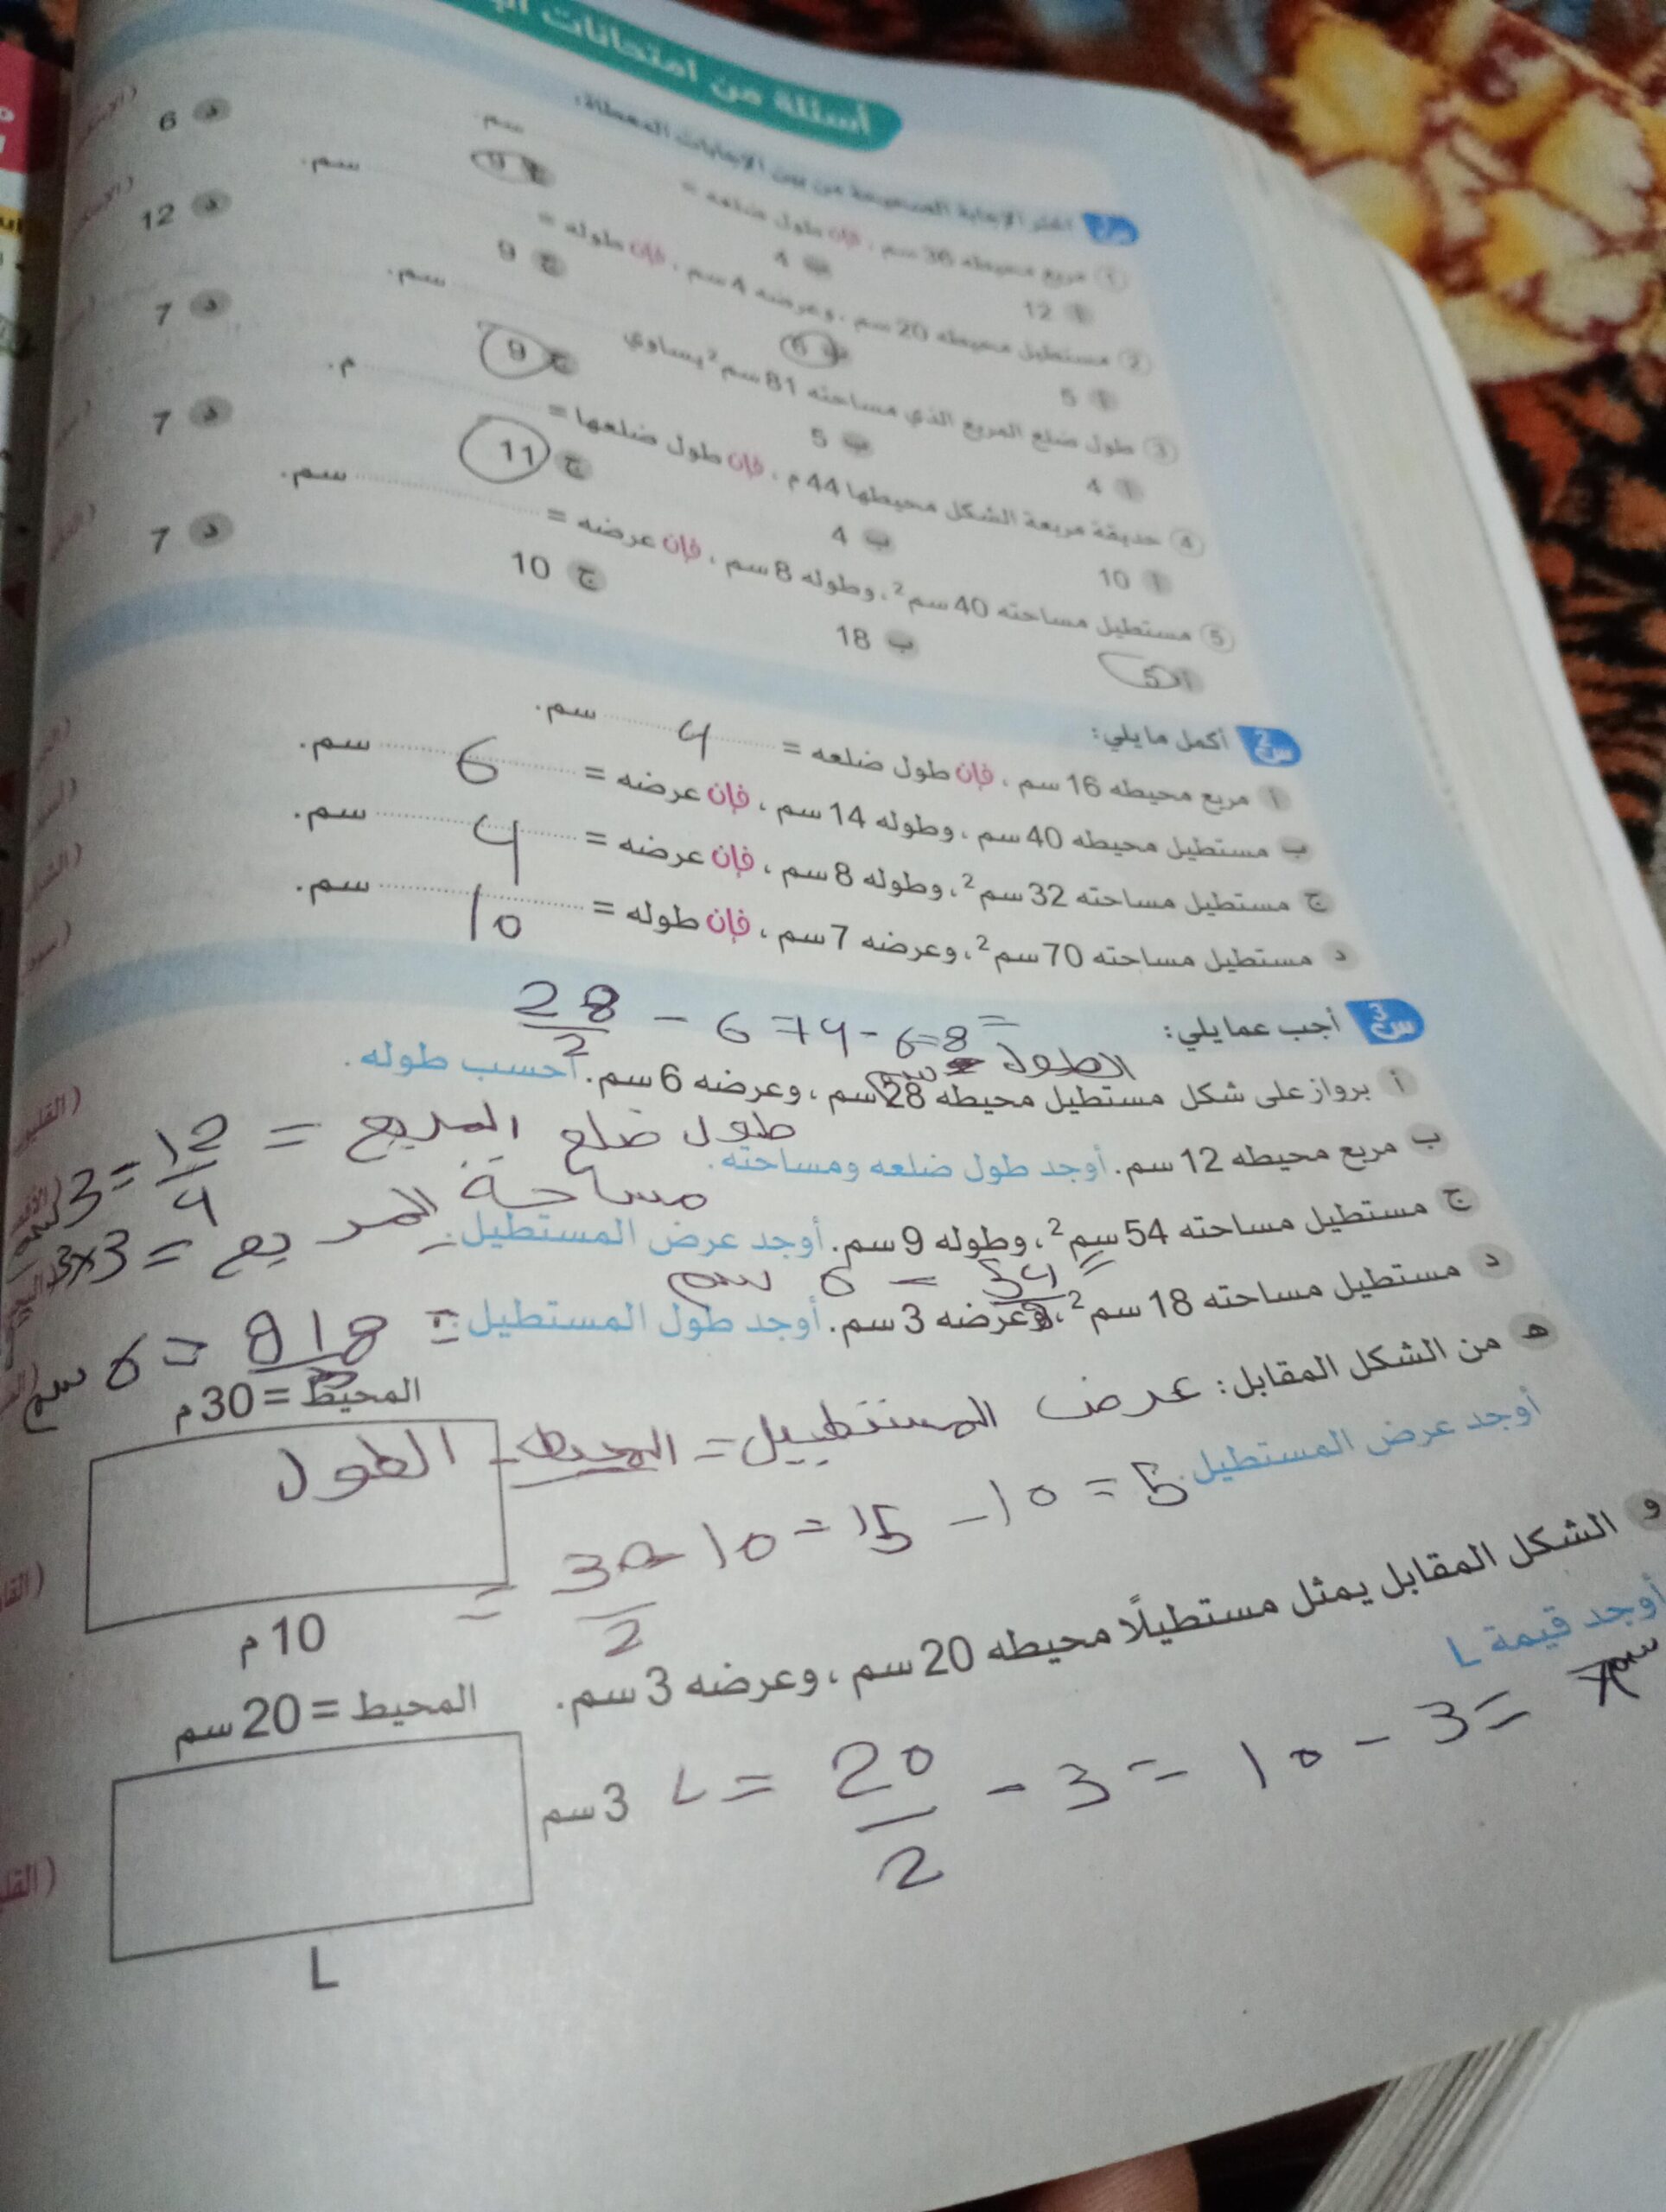 أسئلة من امتحانات
س1 اختر الإجابة الصحيحة من بين الإجابات المعطاة:
1 مربع محيطه 36 سم ، فإن طول ضلعه = سم.
أ 12 ب 4 ج 9 د 6
2 مستطيل محيطه 20 سم ، وعرضه 4 سم ، فإن طوله = سم.
أ 5 ب 6 ج 9 د 12
3 طول ضلع المربع الذي مساحته 81 سم² يساوي سم.
أ 4 ب 5 ج 9 د 7
4 حديقة مربعة الشكل محيطها 44 م ، فإن طول ضلعها = م.
أ 10 ب 4 ج 11 د 7
5 مستطيل مساحته 40 سم² ، وطوله 8 سم ، فإن عرضه = سم.
أ 5 ب 18 ج 10 د 7
س2 أكمل ما يلي:
أ مربع محيطه 16 سم ، فإن طول ضلعه = 4 سم.
ب مستطيل محيطه 40 سم ، وطوله 14 سم ، فإن عرضه = 6 سم.
ج مستطيل مساحته 32 سم² ، وطوله 8 سم ، فإن عرضه = 4 سم.
د مستطيل مساحته 70 سم² ، وعرضه 7 سم ، فإن طوله = 10 سم.
س3 أجب عما يلي:
28/2 - 6 = 14 - 6 = 8 =
الطول
أ برواز على شكل مستطيل محيطه 28 سم ، وعرضه 6 سم. أحسب طوله.
طول ضلع المربع = 12/4 = 3 سم
ب مربع محيطه 12 سم. أوجد طول ضلعه ومساحته.
مساحة المربع = 3×3
ج مستطيل مساحته 54 سم² ، وطوله 9 سم. أوجد عرض المستطيل.
= 6 سم
د مستطيل مساحته 18 سم² ، وعرضه 3 سم. أوجد طول المستطيل.
= 6 سم
ه من الشكل المقابل: عرض المستطيل = المحيط - الطول
المحيط = 30 م
أوجد عرض المستطيل.
= 30/2 - 10 = 15 - 10 = 5
10 م
و الشكل المقابل يمثل مستطيلًا محيطه 20 سم ، وعرضه 3 سم.
أوجد قيمة L
المحيط = 20 سم
3 سم
L = 20/2 - 3 = 10 - 3 = 7 سم
L